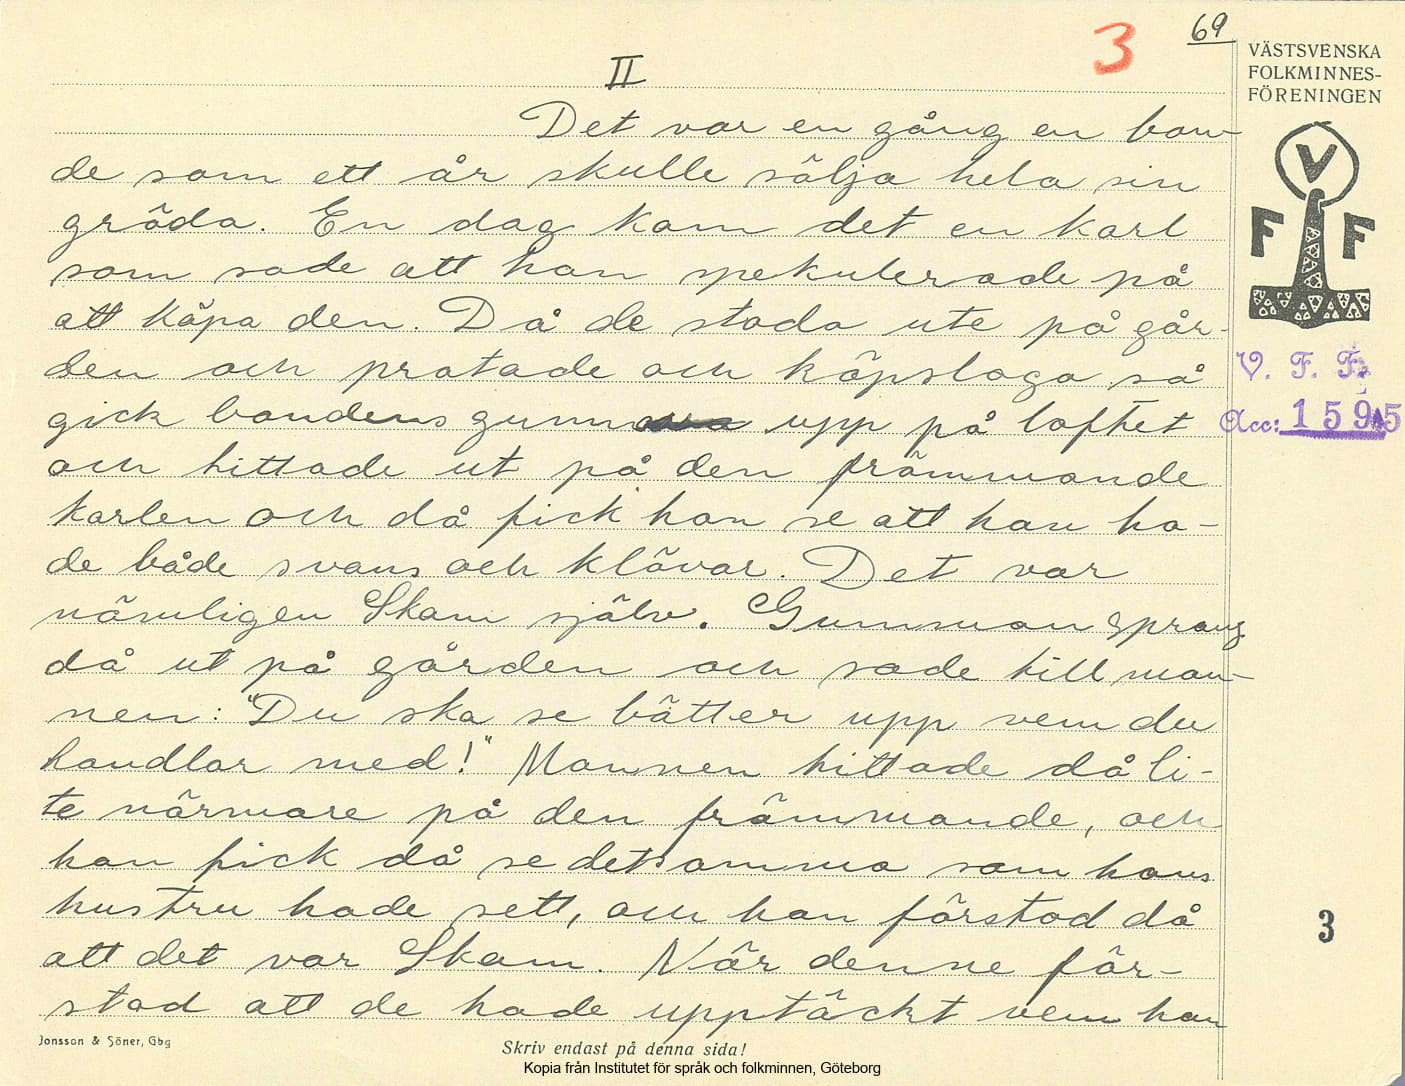 69
3
VÄSTSVENSKA
FOLKMINNES-
FÖRENINGEN
V
F F
V. F. F.
Acc: 1595
II
Det var en gång en bon-
de som ett år skulle sälja hela sin
gröda. En dag kom det en karl
som sade att han spekulerade på
att köpa den. Då de stodo ute på går-
den och pratade och köpsloga så
gick bondens gumma upp på loftet
och tittade ut på den främmande
karlen och då fick hon se att han ha-
de både svans och klövar. Det var
nämligen Skam själv. Gumman sprang
då ut på gården och sade till man-
nen: "Du ska se bätter upp vem du
handlar med!" Mannen tittade då li-
te närmare på den främmande, och
han fick då se detsamma som hans
hustru hade sett, och han förstod då
att det var Skam. När denne för-
stod att de hade upptäckt vem han
3
Jonsson & Söner, Gbg
Skriv endast på denna sida!
Kopia från Institutet för språk och folkminnen, Göteborg